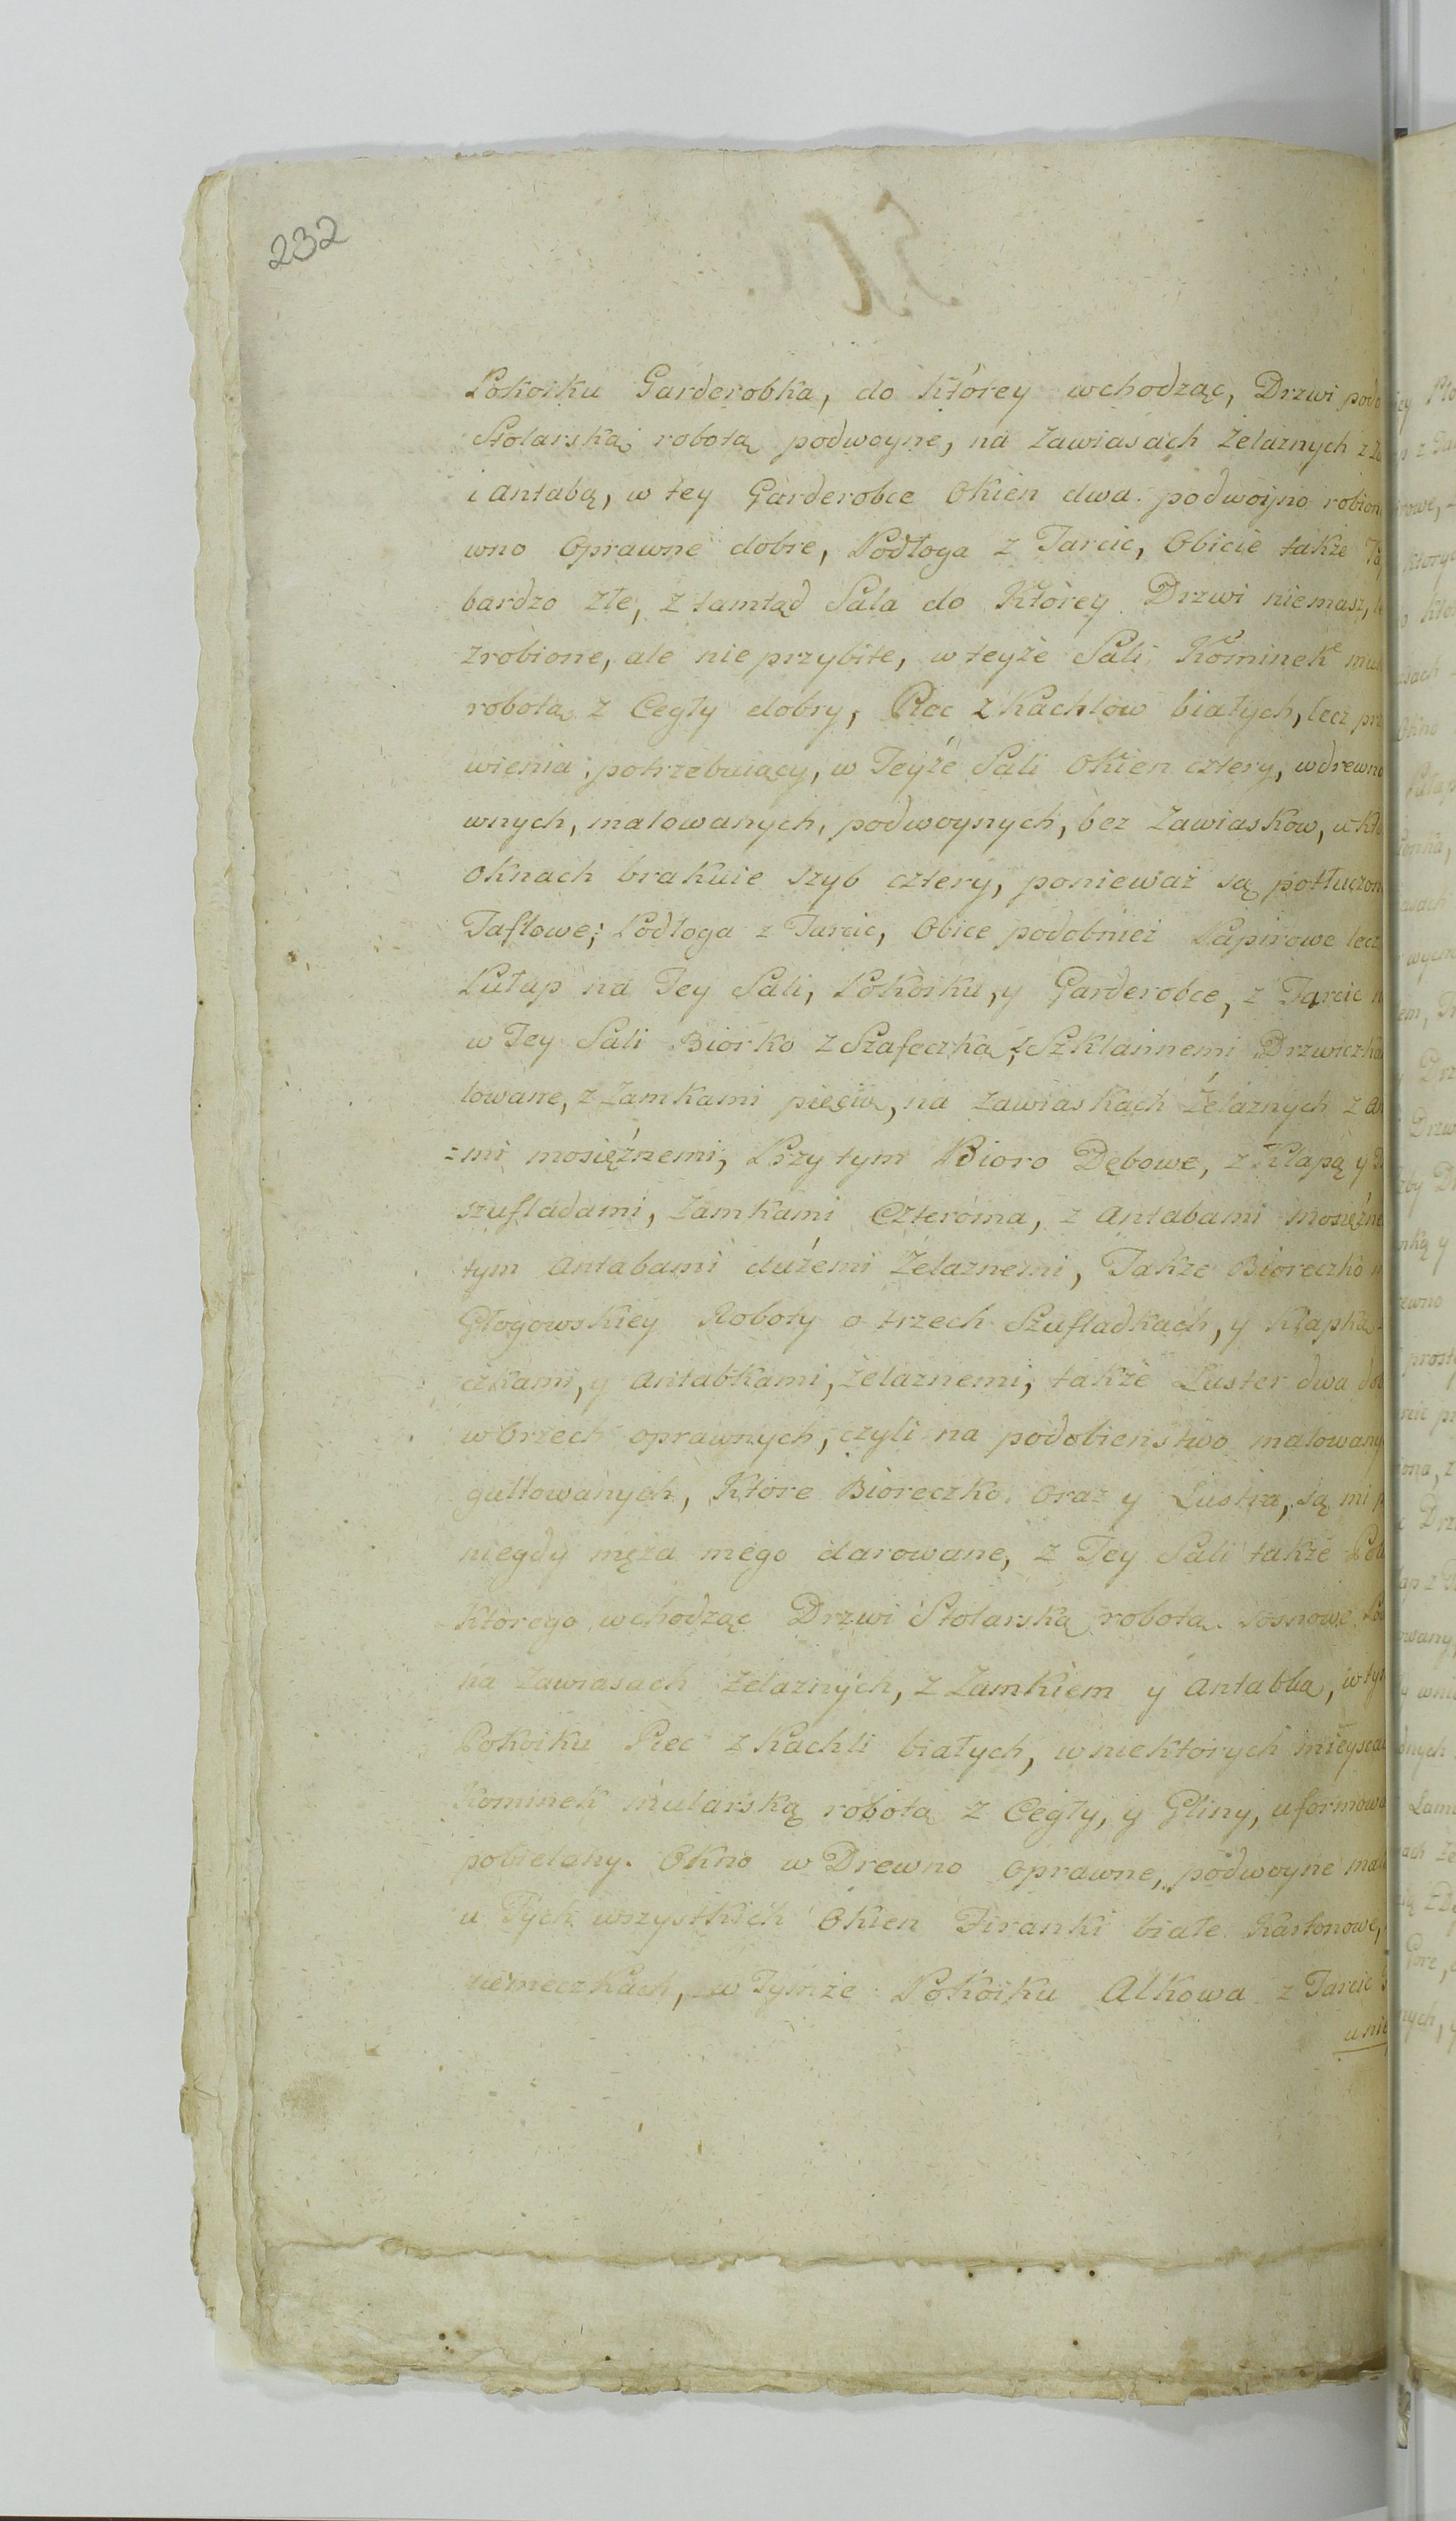 232
Pokoiku Garderobka, do Którey wchodząc, Drzwi podo
Stolarską robotą podwoyne, na Zawiasach Żelaznych z Za
i Antabą, w tey Garderobce Okien dwa podwoyno robion
wno Oprawne dobre, Podłoga z Tarcic, Obicie także Pa
bardzo złe, z tamtąd Sala do Którey Drzwi niemasz, le
zrobione, ale nie przybite, w teyże Sali Kominek mul
robotą z Cegły dobry, Piec z Kachlow białych, lecz pr
wienia potrzebuiący, w Teyże Sali Okien cztery, w drewno
wnych, malowanych, podwoynych, bez Zawiasków, u Któ
Oknach brakuie szyb cztery, ponieważ są potłuczon
Taflowe; Podłoga z Tarcic, Obice podobnież Papirowe lecz
Pułap na Tey Sali, Pokoiku, y Garderobce, z Tarcic n
w Tey Sali Biorko z Szafeczką, z Szklannemi Drzwiczka
lowane, z Zamkami pięcią, na Zawiaskach Żelaznych z an
=mi mosiężnemi, Przy tym Bioro Dębowe, z Klapą y
szufladami, Zamkami Czteroma, z Antabami mosiężne
tym Antabami dużemi Żelaznemi, Także Bioreczko
Głogowskiey Roboty o trzech Szufladkach, y Klapką
czkami, y Antabkami, żelaznemi, także Luster dwa
w Orzech oprawnych, czyli na podobieństwo malowany
gultowanych, Które Bioreczko oraz y Lustra, są mi p
niegdy męża mego darowane, z Tey Sali także Pok
którego wchodząc Drzwi Stolarską robotą sosnowe
na Zawiasach Żelaznych, z Zamkiem y Antabką, w tym
Pokoiku Piec z Kachli białych, w niektorych mieysca
Kominek mularską robotą z Cegły, y Gliny, uformowa
pobielany. Okno w Drewno oprawne, podwoyne mal
u Tych wszystkich Okien Firanki białe Kartonowe,
w Tymże Pokoiku Alkowa z Tarcic
unie